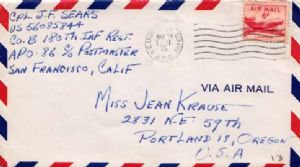 CPL. J.F. SEARS
US 56085844
CO. B 180TH INF REGT.
APO. 86 c/o POSTMASTER
SAN FRANCISCO, CALIF
AIR MAIL
6¢
VIA AIR MAIL
MISS JEAN KRAUSE
2831 N.E 59TH
PORTLAND 13, OREGON
U.S.A
13